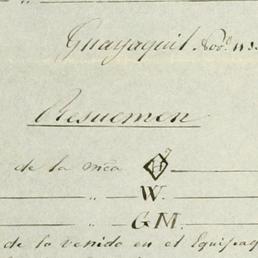 Guayaquil, Nov.
Resuemen
de la mca H
" W.
" GM.
de lo venido en el Equipaq